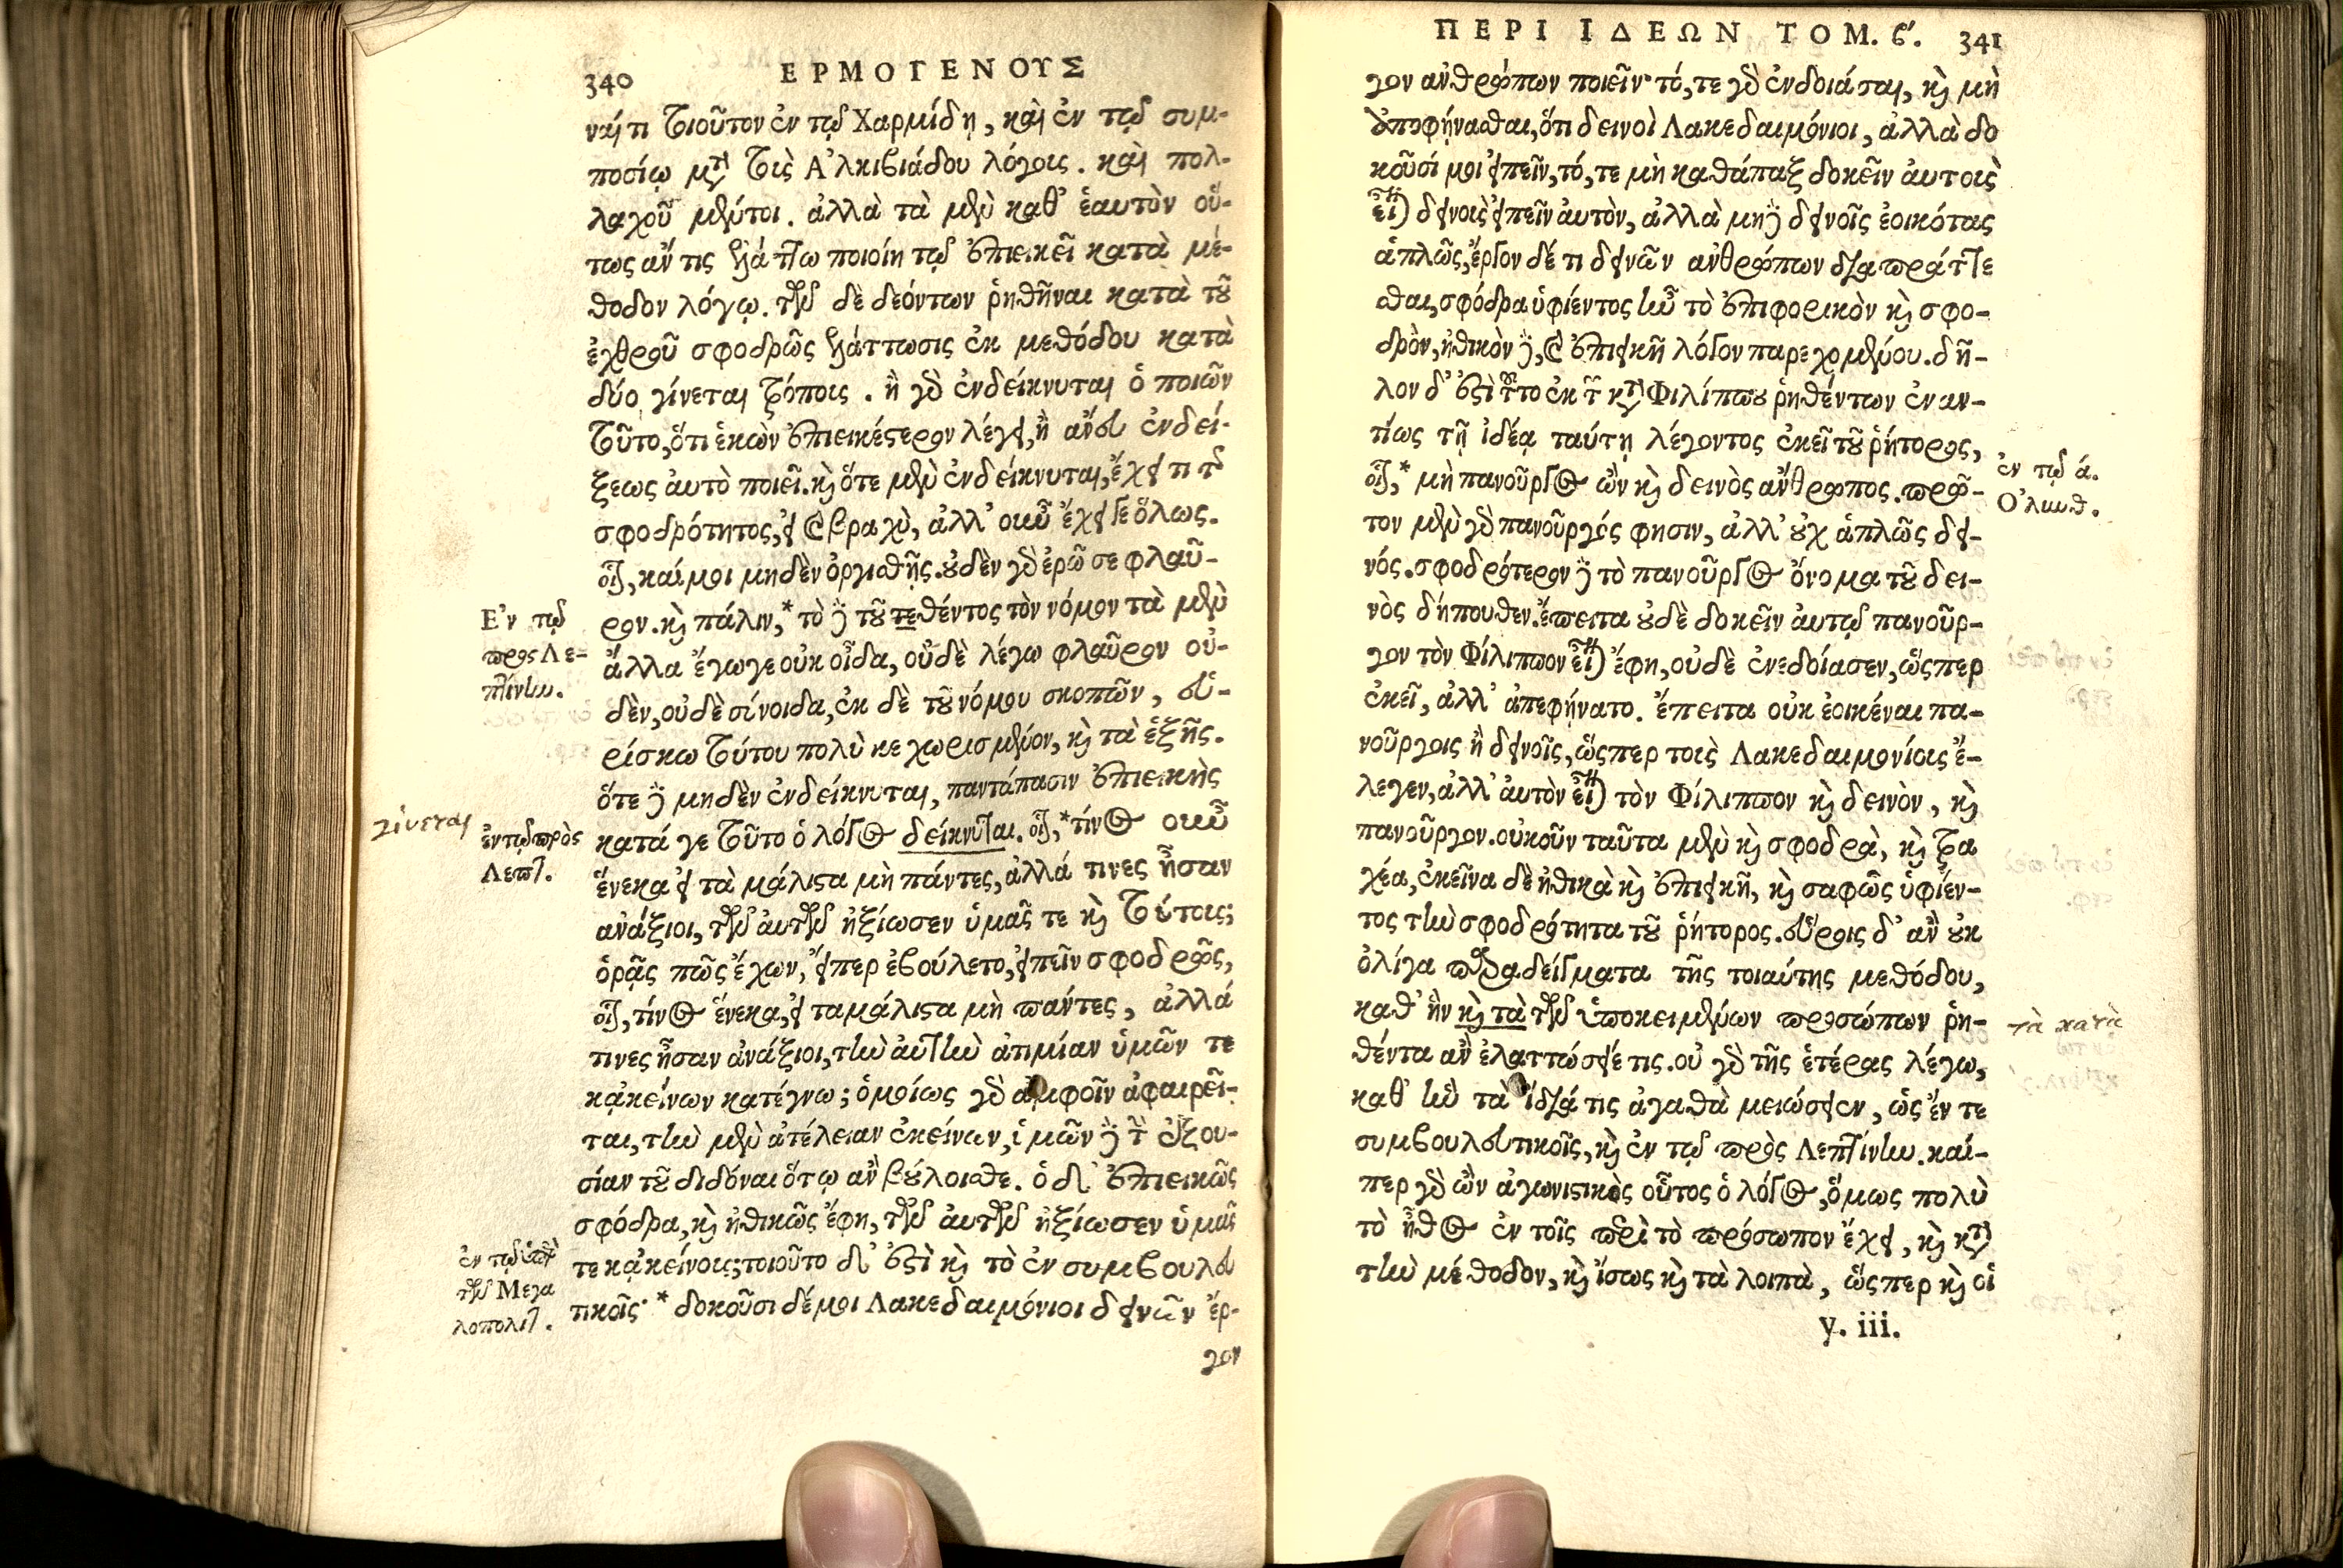 340 ΕΡΜΟΓΕΝΟΥΣ
ναί τι τοιοῦτον ἐν τῷ Χαρμίδῃ, καὶ ἐν τῷ συμ-
ποσίῳ μετὰ τοὺς Ἀλκιβιάδου λόγοις. καὶ πολ-
λαχοῦ μέντοι. ἀλλὰ τὰ μὲν καθ' ἑαυτὸν οὕ-
τως ἄν τις ἐλάττω ποιοίη τῷ ἐπιεικεῖ κατὰ μέ-
θοδον λόγῳ. τῶν δὲ δεόντων ῥηθῆναι κατὰ τοῦ
ἐχθροῦ σφοδρῶς ἐλάττωσις ἐκ μεθόδου κατὰ
δύο γίνεται τρόποις. ἢ γὰρ ἐνδείκνυται ὁ ποιῶν
τοῦτο, ὅτι ἑκὼν ἐπιεικέστερον λέγει, ἢ ἄνευ ἐνδεί-
ξεως αὐτὸ ποιεῖ. καὶ ὅτε μὲν ἐνδείκνυται, ἔχει τι τῆς
σφοδρότητος, εἰ καὶ βραχὺ, ἀλλ' οὖν ἔχει γε ὅλως.
οἷον, καί μοι μηδὲν ὀργισθῇς. οὐδὲν γὰρ ἐρῶ σε φλαῦ-
ρον. καὶ πάλιν, * τὸ δὲ τοῦ τεθέντος τὸν νόμον τὰ μὲν
Ἐν τῷ
πρὸς Λε-
πτίνην.
ἄλλα ἔγωγε οὐκ οἶδα, οὐδὲ λέγω φλαῦρον οὐ-
δὲν, οὐδὲ σύνοιδα, ἐκ δὲ τοῦ νόμου σκοπῶν, εὑ-
ρίσκω τούτου πολὺ κεχωρισμένον, καὶ τὰ ἑξῆς.
ὅτε δὲ μηδὲν ἐνδείκνυται, παντάπασιν ἐπιεικὴς
κατά γε τοῦτο ὁ λόγος δείκνυται. οἷον, * τίνος οὖν
γίνεται
ἐν τῷ πρὸς
Λεπτ.
ἕνεκα εἰ τὰ μάλιστα μὴ πάντες, ἀλλά τινες ἦσαν
ἀνάξιοι, τῶν αὐτῶν ἠξίωσεν ὑμᾶς τε καὶ τούτοις;
ὁρᾷς πῶς ἔχων, εἴπερ ἐβούλετο, εἰπεῖν σφοδρῶς,
οἷον, τίνος ἕνεκα, εἰ τὰ μάλιστα μὴ πάντες, ἀλλά
τινες ἦσαν ἀνάξιοι, τὴν αὐτὴν ἀτιμίαν ὑμῶν τε
κᾀκείνων κατέγνω; ὁμοίως γὰρ ἀμφοῖν ἀφαιρεῖ-
ται, τὴν μὲν ἀτέλειαν ἐκείνων, ὑμῶν δὲ τὴν ἐξου-
σίαν τοῦ διδόναι ὅτῳ ἂν βούλοισθε. ὁ δ' ἐπιεικῶς
σφόδρα, καὶ ἠθικῶς ἔφη, τῶν αὐτῶν ἠξίωσεν ὑμᾶς
τε κᾀκείνοις; τοιοῦτο δ' ἐστὶ καὶ τὸ ἐν συμβουλευ
ἐν τῷ ὑπὲρ
τῶν Μεγα
λοπολιτ.
τικοῖς· * δοκοῦσι δέ μοι Λακεδαιμόνιοι δεινῶν ἔρ-
γον
ΠΕΡΙ ΙΔΕΩΝ ΤΟΜ. ϛ'. 341
γον ἀνθρώπων ποιεῖν· τό, τε γὰρ ἐνδοιάσαι, καὶ μὴ
ἀποφήνασθαι, ὅτι δεινοὶ Λακεδαιμόνιοι, ἀλλὰ δο
κοῦσί μοι εἰπεῖν, τό, τε μὴ καθάπαξ δοκεῖν αὐτοὺς
εἶναι δεινοὺς εἰπεῖν αὐτὸν, ἀλλὰ μὴν δεινοῖς ἐοικότας
ἁπλῶς, ἔργον δέ τι δεινῶν ἀνθρώπων διαπράττε
σθαι, σφόδρα ὑφίεντος ἦν τὸ ἐπιφορικὸν καὶ σφο-
δρὸν, ἠθικὸν δὲ, καὶ ἐπιεικῆ λόγον παρεχομένου. δῆ-
λον δ' ἐστὶ τοῦτο ἐκ τῶν κατὰ Φιλίππου ῥηθέντων ἐναν-
τίως τῇ ἰδέᾳ ταύτῃ λέγοντος ἐκεῖ τοῦ ῥήτορος,
οἷον, * μὴ πανοῦργος ὢν καὶ δεινὸς ἄνθρωπος. πρῶ-
ἐν τῷ ά.
Ὀλυνθ.
τον μὲν γὰρ πανοῦργός φησιν, ἀλλ' οὐχ ἁπλῶς δει-
νός. σφοδρότερον δὲ τὸ πανοῦργος ὄνομα τοῦ δει-
νὸς δήπουθεν. ἔπειτα οὐδὲ δοκεῖν αὐτῷ πανοῦρ-
γον τὸν Φίλιππον εἶναι ἔφη, οὐδὲ ἐνεδοίασεν, ὥσπερ
ἐκεῖ, ἀλλ' ἀπεφήνατο. ἔπειτα οὐκ ἐοικέναι πα-
νούργοις ἢ δεινοῖς, ὥσπερ τοὺς Λακεδαιμονίους ἔ-
λεγεν, ἀλλ' αὐτὸν εἶναι τὸν Φίλιππον καὶ δεινὸν, καὶ
πανοῦργον. οὐκοῦν ταῦτα μὲν καὶ σφοδρὰ, καὶ τρα
χέα, ἐκεῖνα δὲ ἠθικὰ καὶ ἐπιεικῆ, καὶ σαφῶς ὑφίεν-
τος τὴν σφοδρότητα τοῦ ῥήτορος. εὕροις δ' ἂν οὐκ
ὀλίγα παραδείγματα τῆς τοιαύτης μεθόδου,
καθ' ἣν καὶ τὰ τῶν ὑποκειμένων προσώπων ῥη-
τὰ κατὰ
θέντα ἂν ἐλαττώσειέ τις. οὐ γὰρ τῆς ἑτέρας λέγω,
καθ' ἣν τὰ ἴδιά τις ἀγαθὰ μειώσειεν, ὡς ἔν τε
συμβουλευτικοῖς, καὶ ἐν τῷ πρὸς Λεπτίνην. καί-
περ γὰρ ὢν ἀγωνιστικὸς οὗτος ὁ λόγος, ὅμως πολὺ
τὸ ἦθος ἐν τοῖς περὶ τὸ πρόσωπον ἔχει, καὶ κατὰ
τὴν μέθοδον, καὶ ἴσως καὶ τὰ λοιπὰ, ὥσπερ καὶ οἱ
y. iii.